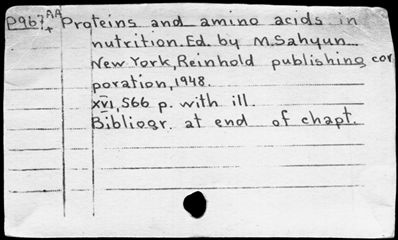 P967 AA+ Proteins and amino acids in
nutrition. Ed. by M. Sahyun
New York, Reinhold publishing cor
poration, 1948.
XVI, 566 p. with ill.
Bibliogr. at end of chapt.